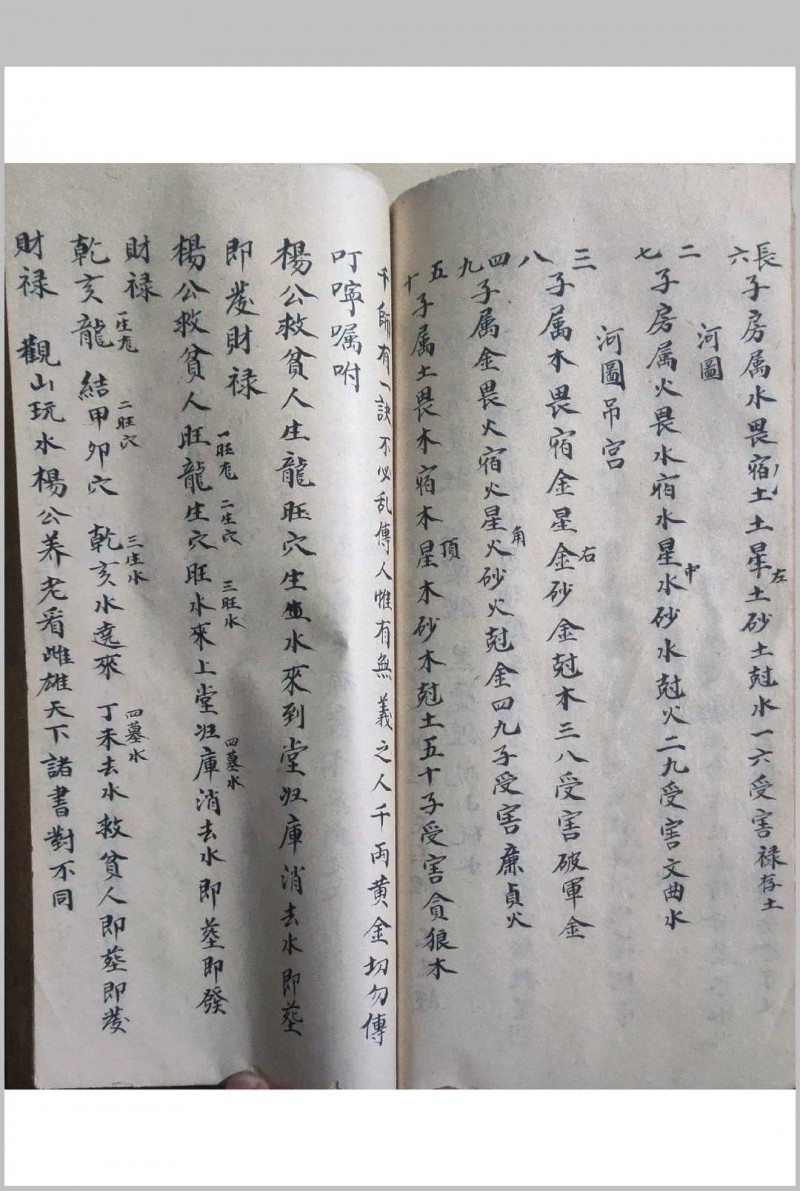 長六子房属水畏宿土土星土砂土尅水一六受害禄存土
左
河圖
二七子房属火畏水宿水星水砂水尅火二九受害文曲水
中
河圖吊宫
三八子属木畏宿金星金砂金尅木三八受害破軍金
右
四九子属金畏火宿火星火砂火尅金四九子受害廉貞火
角
五十子属土畏木宿木星木砂木尅土五十子受害貪狼木
頂
千師有一訣不必乱傳人惟有無義之人千両黄金切勿傳
叮嚀嘱咐
楊公救貧人生龍旺穴生水來到堂归庫消去水即塟
即發財禄
楊公救貧人旺龍生穴旺水來上堂归庫消去水即塟即發
一旺龙 二生穴 三旺水 四墓水
財禄
乾亥龍結甲卯穴乾亥水遠來丁未去水救貧人即塟即發
一生龙 二旺穴 三生水 四墓水
財禄 觀山玩水楊公养老看雌雄天下諸書對不同